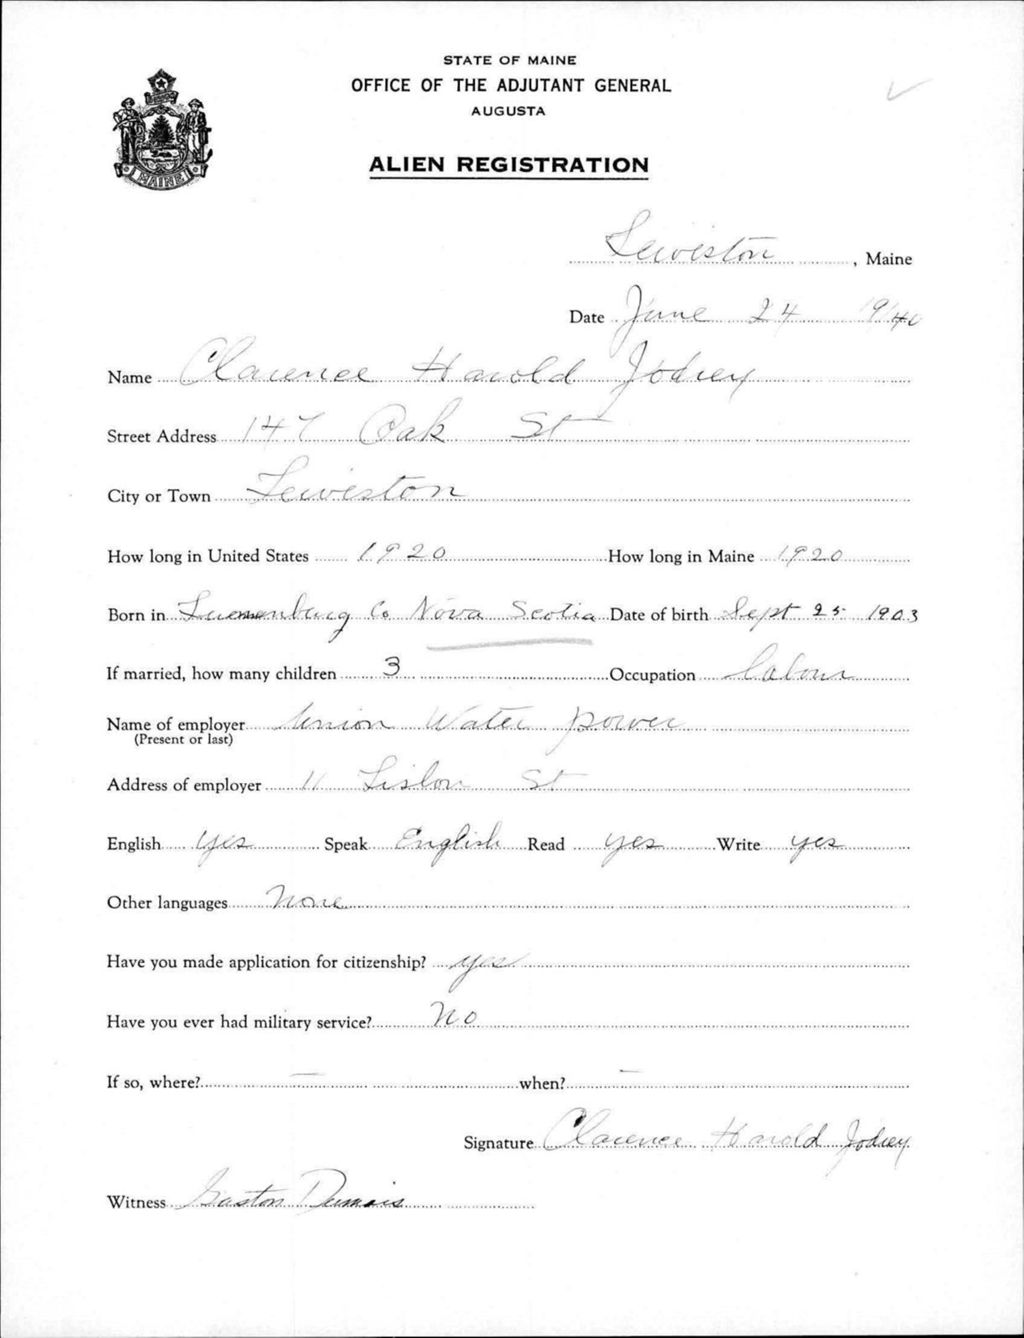 STATE OF MAINE
OFFICE OF THE ADJUTANT GENERAL
AUGUSTA
ALIEN REGISTRATION
MAINE
Lewiston, Maine
Date June 24 1940
Name Clarence Harold Jodrey
Street Address 147 Oak St
City or Town Lewiston
How long in United States 1920 How long in Maine 1920
Born in Lunenburg Co Nova Scotia Date of birth Sept 25 1903
If married, how many children 3 Occupation labour
Name of employer Union Water power
(Present or last)
Address of employer 11 Lisbon St
English yes Speak English Read yes Write yes
Other languages None
Have you made application for citizenship? yes
Have you ever had military service? No
If so, where? — when? —
Signature Clarence Harold Jodrey
Witness Gaston Dumais